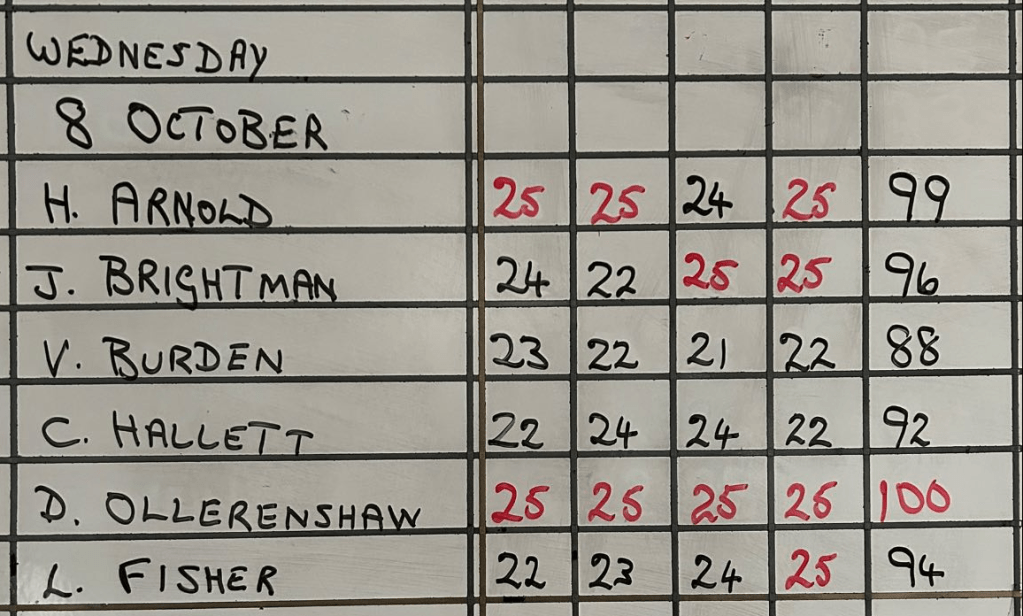 WEDNESDAY
8 OCTOBER
H. ARNOLD 25 25 24 25 99
J. BRIGHTMAN 24 22 25 25 96
V. BURDEN 23 22 21 22 88
C. HALLETT 22 24 24 22 92
D. OLLERENSHAW 25 25 25 25 100
L. FISHER 22 23 24 25 94